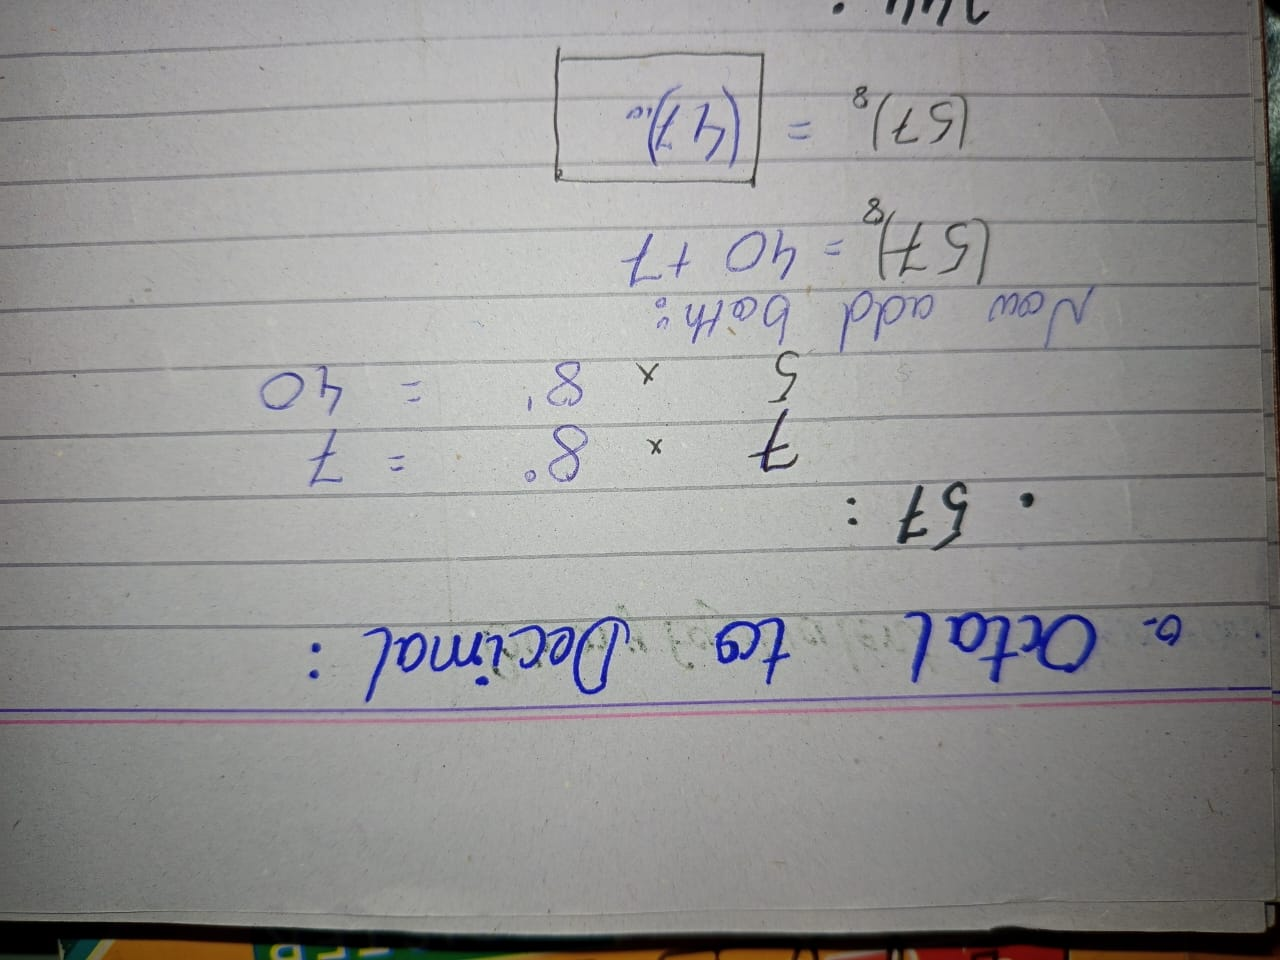 o. Octal to Decimal :
• 57 :
7 x 8⁰ = 7
5 x 8¹ = 40
Now add both :
(57)₈ = 40 + 7
(57)₈ = (47)₁₀